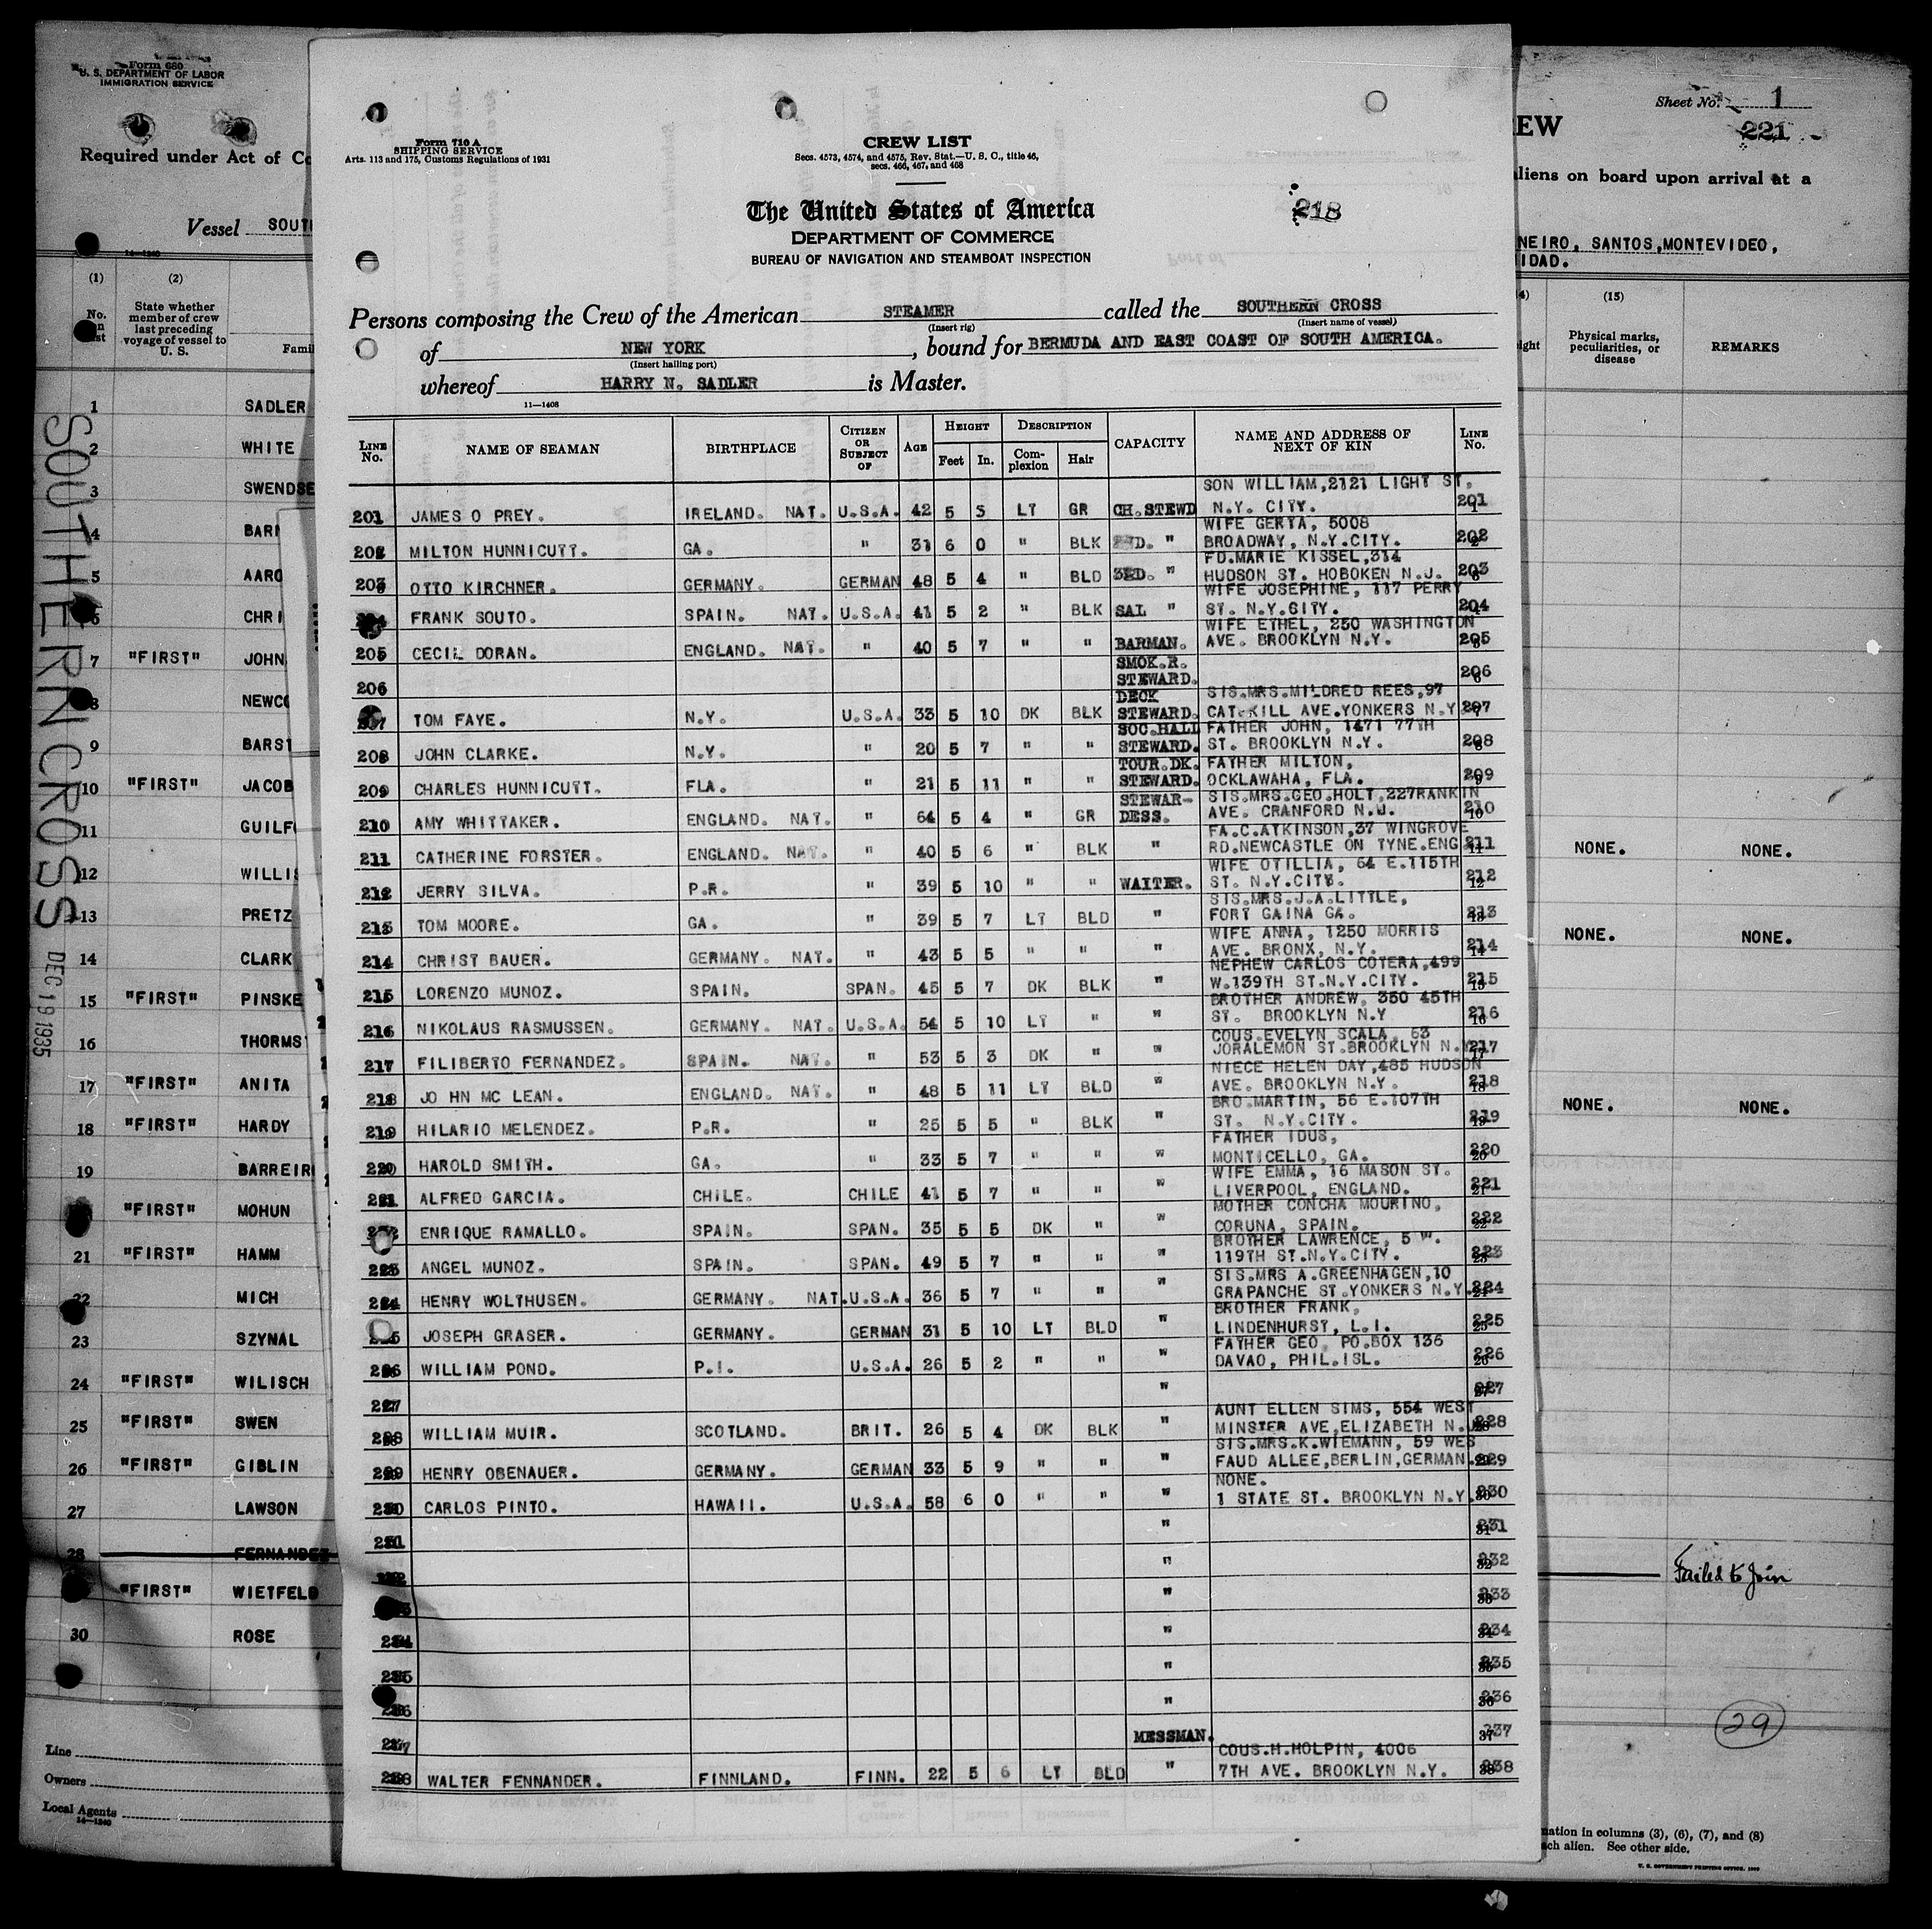 Form 680
U. S. DEPARTMENT OF LABOR
IMMIGRATION SERVICE
Required under Act of Co
Vessel SOUTH
14—1240
(1) (2)
No. State whether member of crew last preceding voyage of vessel to U. S. Famil
1 SADLER
2 WHITE
3 SWENDSE
4 BARN
5 AARO
6 CHRI
7 "FIRST" JOHN
8 NEWCO
9 BARST
10 "FIRST" JACOB
11 GUILFO
12 WILLIS
13 PRETZ
14 CLARK
15 "FIRST" PINSKE
16 THORMS
17 "FIRST" ANITA
18 "FIRST" HARDY
19 BARREIR
"FIRST" MOHUN
21 "FIRST" HAMM
22 MICH
23 SZYNAL
24 "FIRST" WILISCH
25 "FIRST" SWEN
26 "FIRST" GIBLIN
27 LAWSON
28 FERNANDEZ
"FIRST" WIETFELD
30 ROSE
Line
Owners
Local Agents
14—1240
SOUTHERN CROSS DEC 19 1935
Form 710 A
SHIPPING SERVICE
Arts. 113 and 175, Customs Regulations of 1931
CREW LIST
Secs. 4573, 4574, and 4575, Rev. Stat.—U. S. C., title 46,
secs. 466, 467, and 468
The United States of America
218
DEPARTMENT OF COMMERCE
BUREAU OF NAVIGATION AND STEAMBOAT INSPECTION
Persons composing the Crew of the American STEAMER called the SOUTHERN CROSS
(Insert rig) (Insert name of vessel)
of NEW YORK, bound for BERMUDA AND EAST COAST OF SOUTH AMERICA.
(Insert hailing port)
whereof HARRY N. SADLER is Master.
11—1408
LINE No. NAME OF SEAMAN BIRTHPLACE CITIZEN OR SUBJECT OF AGE HEIGHT Feet In. DESCRIPTION Complexion Hair CAPACITY NAME AND ADDRESS OF NEXT OF KIN LINE No.
SON WILLIAM,2121 LIGHT ST.
201 JAMES O PREY. IRELAND. NAT. U.S.A. 42 5 5 LT GR CH.STEWD N.Y. CITY. 201
WIFE GERTA, 5008
202 MILTON HUNNICUTT. GA. " 31 6 0 " BLK 2ND. " BROADWAY, N.Y.CITY. 202
FD.MARIE KISSEL,314
203 OTTO KIRCHNER. GERMANY. GERMAN 48 5 4 " BLD 3RD. " HUDSON ST. HOBOKEN N.J. 203
WIFE JOSEPHINE, 117 PERRY
204 FRANK SOUTO. SPAIN. NAT. U.S.A. 41 5 2 " BLK SAL " ST. N.Y.CITY. 204
WIFE ETHEL, 250 WASHINGTON
205 CECIL DORAN. ENGLAND. NAT. " 40 5 7 " " BARMAN. AVE. BROOKLYN N.Y. 205
206 SMOK.R. STEWARD. 206
DECK SIS.MRS.MILDRED REES,97
207 TOM FAYE. N.Y. U.S.A. 33 5 10 DK BLK STEWARD. CATSKILL AVE.YONKERS N.Y. 207
SOC.HALL FATHER JOHN, 1471 77TH
208 JOHN CLARKE. N.Y. " 20 5 7 " " STEWARD. ST. BROOKLYN N.Y. 208
TOUR.DK. FATHER MILTON,
209 CHARLES HUNNICUTT. FLA. " 21 5 11 " " STEWARD. OCKLAWAHA, FLA. 209
STEWAR- SIS.MRS.GEO.HOLT,227RANKIN
210 AMY WHITTAKER. ENGLAND. NAT. " 64 5 4 " GR DESS. AVE. CRANFORD N.J. 210
FA.C.ATKINSON,37 WINGROVE
211 CATHERINE FORSTER. ENGLAND. NAT. " 40 5 6 " BLK " RD.NEWCASTLE ON TYNE.ENG 211
WIFE OTILLIA, 64 E.115TH
212 JERRY SILVA. P.R. " 39 5 10 " " WAITER. ST. N.Y.CITY. 212
SIS.MRS.J.A.LITTLE,
213 TOM MOORE. GA. " 39 5 7 LT BLD " FORT GAINA GA. 213
WIFE ANNA, 1250 MORRIS
214 CHRIST BAUER. GERMANY. NAT. " 43 5 5 " " " AVE. BRONX, N.Y. 214
NEPHEW CARLOS COTERA,499
215 LORENZO MUNOZ. SPAIN. SPAN. 45 5 7 DK BLK " W.139TH ST.N.Y.CITY. 215
BROTHER ANDREW, 350 45TH
216 NIKOLAUS RASMUSSEN. GERMANY. NAT. U.S.A. 54 5 10 LT " " ST. BROOKLYN N.Y 216
COUS.EVELYN SCALA, 63
217 FILIBERTO FERNANDEZ. SPAIN. NAT. " 53 5 3 DK " " JORALEMON ST.BROOKLYN N.Y. 217
NIECE HELEN DAY,485 HUDSON
218 JO HN MC LEAN. ENGLAND. NAT. " 48 5 11 LT BLD " AVE. BROOKLYN N.Y. 218
BRO.MARTIN, 56 E.107TH
219 HILARIO MELENDEZ. P.R. " 25 5 5 " BLK " ST. N.Y.CITY. 219
FATHER IDUS,
220 HAROLD SMITH. GA. " 33 5 7 " " " MONTICELLO, GA. 220
WIFE EMMA, 16 MASON ST.
221 ALFRED GARCIA. CHILE. CHILE 41 5 7 " " " LIVERPOOL, ENGLAND. 221
MOTHER CONCHA MOURINO,
222 ENRIQUE RAMALLO. SPAIN. SPAN. 35 5 5 DK " " CORUNA, SPAIN. 222
BROTHER LAWRENCE, 5 W.
223 ANGEL MUNOZ. SPAIN. SPAN. 49 5 7 " " " 119TH ST.N.Y.CITY. 223
SIS.MRS A.GREENHAGEN,10
224 HENRY WOLTHUSEN. GERMANY. NAT. U.S.A. 36 5 7 " " " GRAPANCHE ST.YONKERS N.Y. 224
BROTHER FRANK,
225 JOSEPH GRASER. GERMANY. GERMAN 31 5 10 LT BLD " LINDENHURST, L.I. 225
FATHER GEO. PO.BOX 136
226 WILLIAM POND. P.I. U.S.A. 26 5 2 " " " DAVAO, PHIL.ISL. 226
227 " 227
AUNT ELLEN SIMS, 554 WEST
228 WILLIAM MUIR. SCOTLAND. BRIT. 26 5 4 DK BLK " MINSTER AVE,ELIZABETH N.J. 228
SIS.MRS.K.WIEMANN, 59 WES
229 HENRY OBENAUER. GERMANY. GERMAN 33 5 9 " " " FAUD ALLEE,BERLIN,GERMAN. 229
NONE.
230 CARLOS PINTO. HAWAII. U.S.A. 58 6 0 " " " 1 STATE ST. BROOKLYN N.Y. 230
231 " 231
232 " 232
233 " 233
234 " 234
235 " 235
236 " 236
237 MESSMAN. 237
COUS.H.HOLPIN, 4006
238 WALTER FENNANDER. FINNLAND. FINN. 22 5 6 LT BLD " 7TH AVE. BROOKLYN N.Y. 238
Sheet No. 1
EW 221
aliens on board upon arrival at a
NEIRO, SANTOS,MONTEVIDEO,
IDAD.
(15)
ight Physical marks, peculiarities, or disease REMARKS
NONE. NONE.
NONE. NONE.
NONE. NONE.
Failed to Join
29
mation in columns (3), (6), (7), and (8)
ach alien. See other side.
U. S. GOVERNMENT PRINTING OFFICE